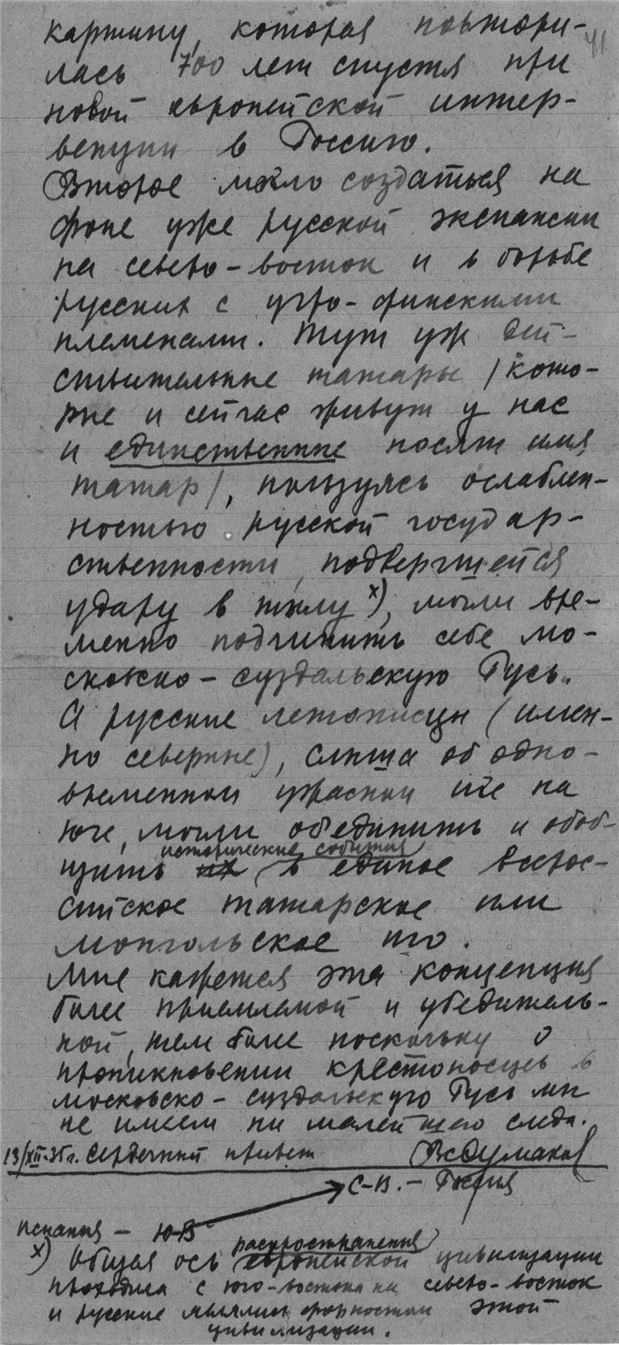 41
картину, которая повтори-
лась 700 лет спустя при
новой европейской интер-
венции в Россию.
Второе могло создаться на
фоне уже русской экспансии
на северо-восток и в борьбе
русских с угро-финскими
племенами. Тут уж дей-
ствительные татары /кото-
рые и сейчас живут у нас
и единственные носят имя
татар/, пользуясь ослаблен-
ностью русской государ-
ственности, подвергшейся
удару в тылу х), могли вре-
менно подчинить себе мо-
сковско-суздальскую Русь.
А русские летописцы (имен-
но северные), слыша об одно-
временном ужасном иге на
юге, могли объединить и обоб-
исторические события
щить их в единое всерос-
сийское татарское или
монгольское иго.
Мне кажется эта концепция
более приемлемой и убедитель-
ной, тем более поскольку о
проникновении крестоносцев в
московско-суздальскую Русь мы
не имеем ни малейшего следа.
13/XII-35г. Сердечный привет
С-В. – Россия
испания – Ю-В
распространения
х) Общая ось европейской цивилизации
проходила с юго-востока на северо-восток
и русские являлись форпостом этой
цивилизации.